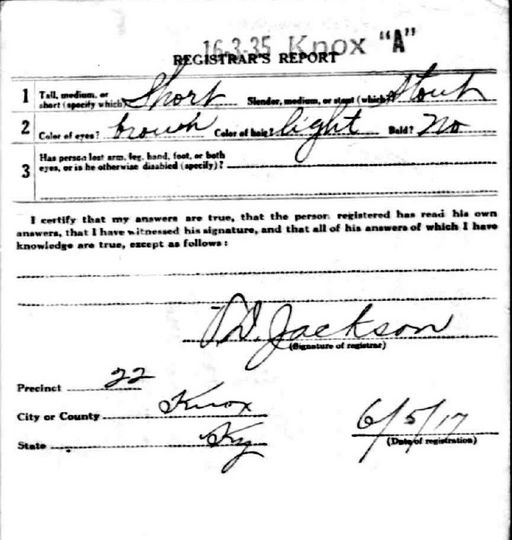 16-3-35 Knox "A"
REGISTRAR'S REPORT
1 Tall, medium, or short (specify which)? Short Slender, medium, or stout (which)? Stout
2 Color of eyes? brown Color of hair? light Bald? No
3 Has person lost arm, leg, hand, foot, or both eyes, or is he otherwise disabled (specify)?
I certify that my answers are true, that the person registered has read his own
answers, that I have witnessed his signature, and that all of his answers of which I have
knowledge are true, except as follows:
D. Jackson
(Signature of registrar)
Precinct 22
City or County Knox
State Ky
6/5/17
(Date of registration)